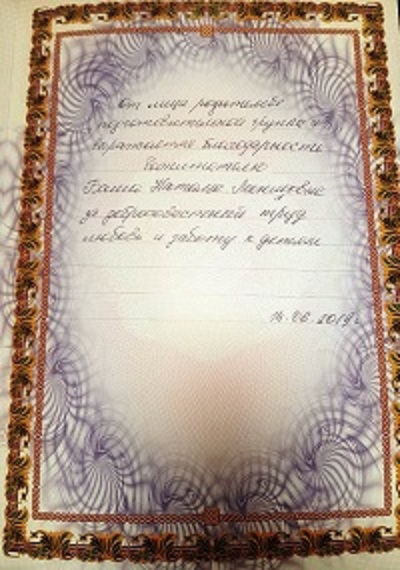 От лица родителей
подготовительной группы
выражается благодарность
воспитателю
Наталье
за добросовестный труд
любовь и заботу к детям
06.2019г.